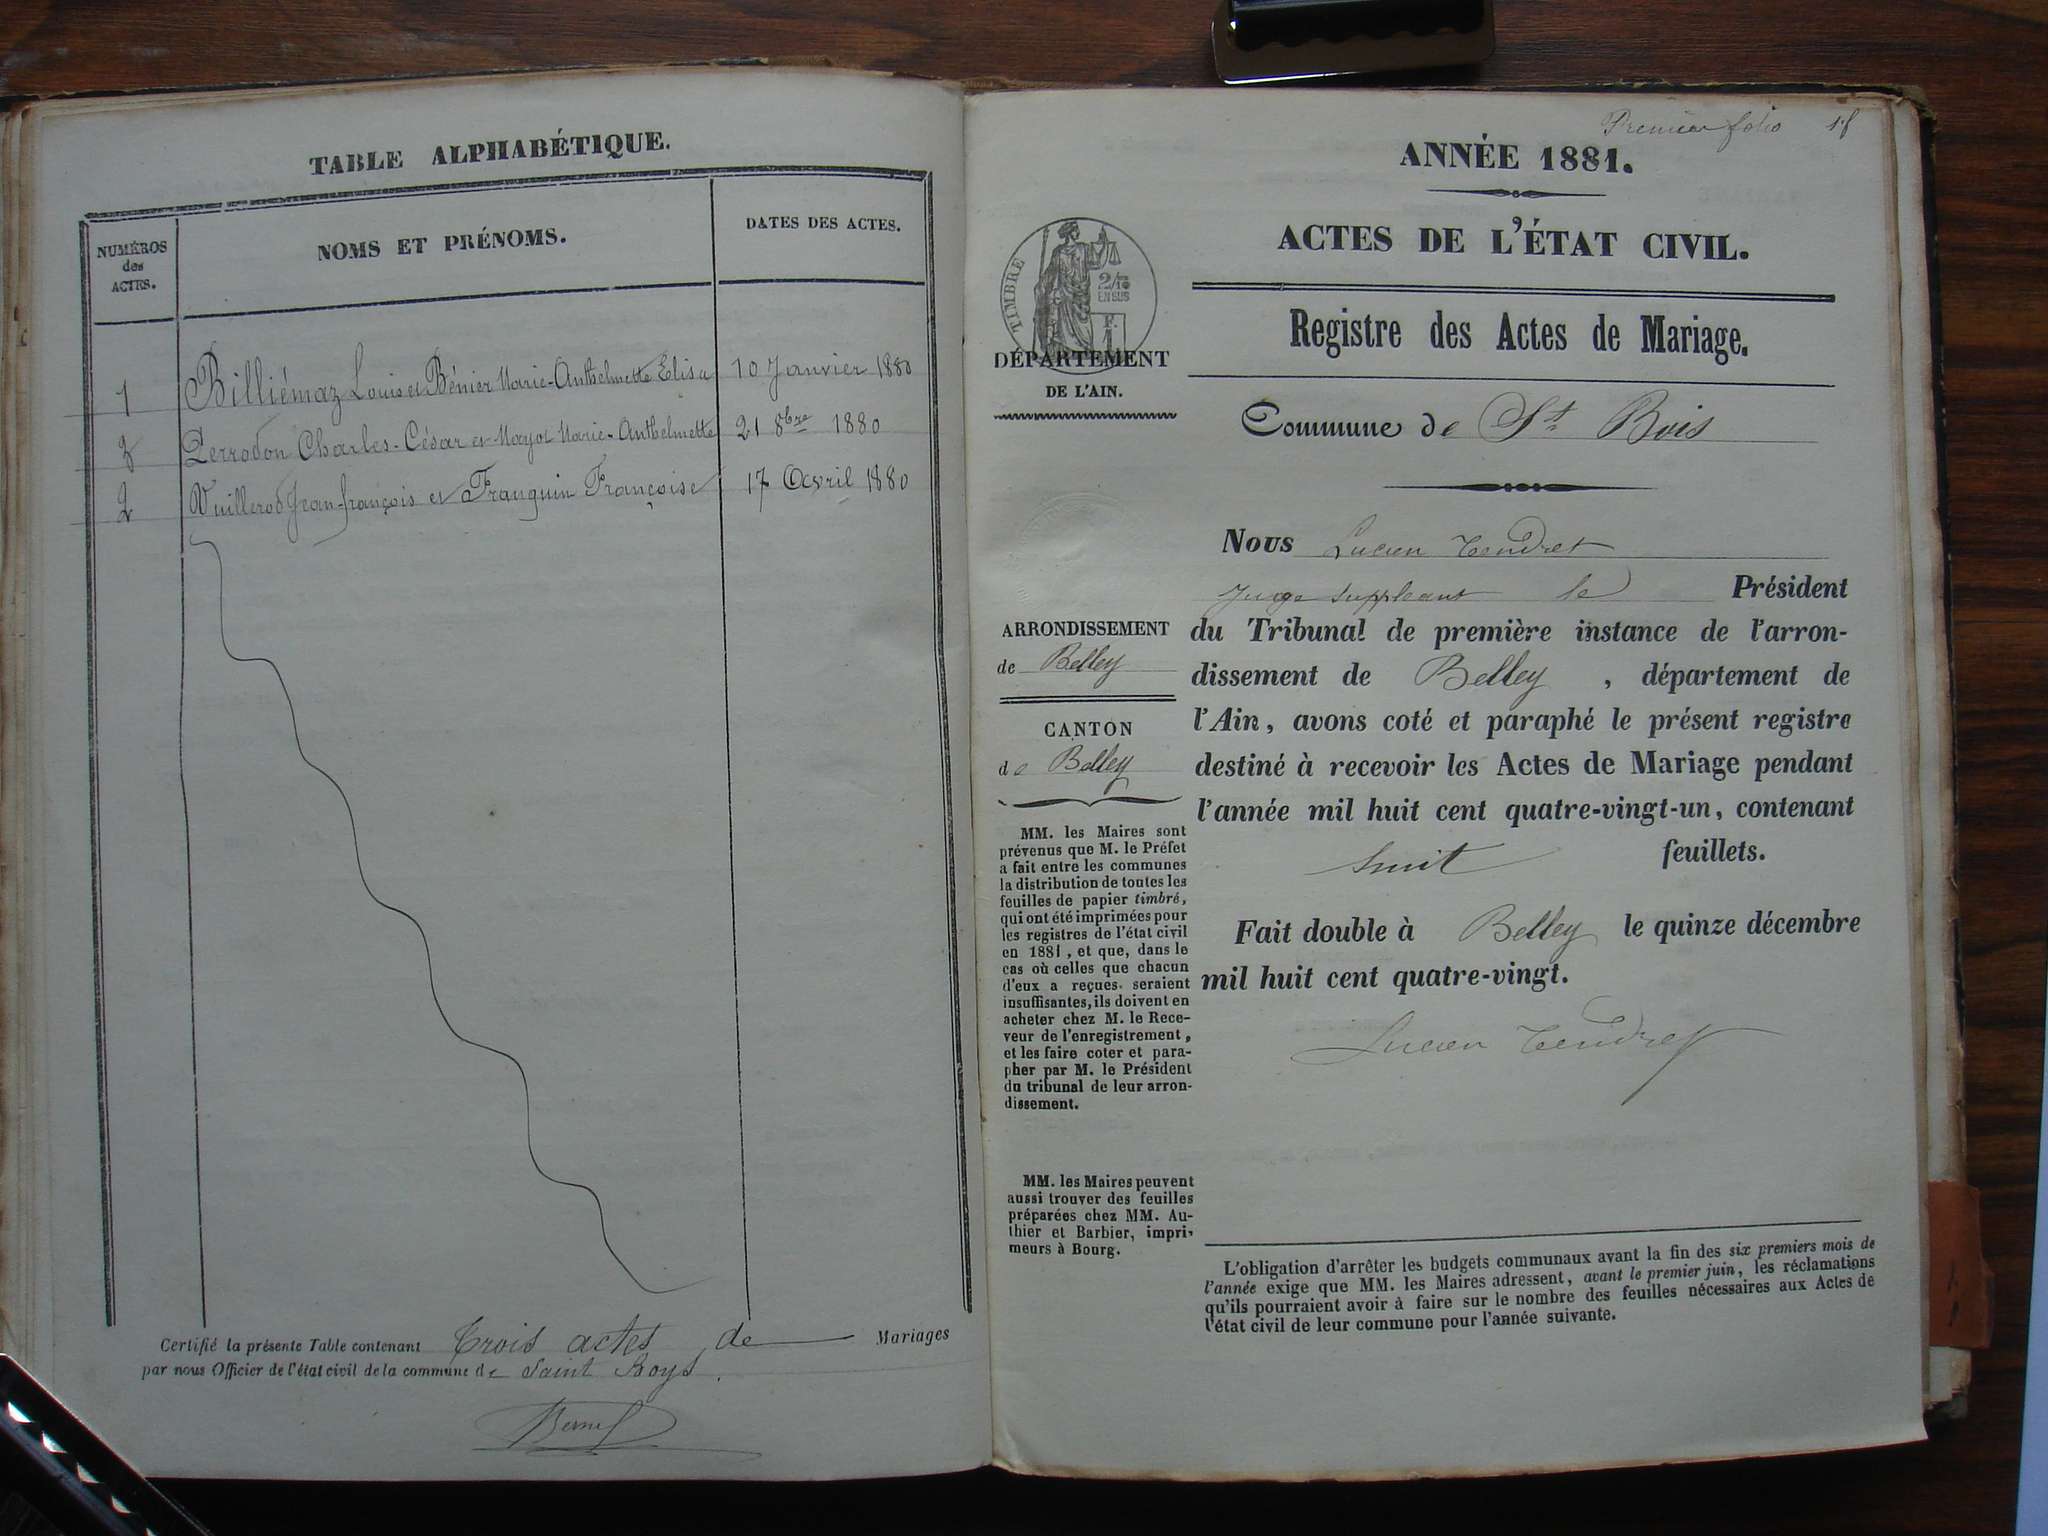 TABLE ALPHABÉTIQUE.
NUMÉROS
des
ACTES.
NOMS ET PRÉNOMS.
DATES DES ACTES.
1 Billiémaz Louis et Bénier Marie-Anthelmette Elisa 10 Janvier 1880
3 Perrodon Charles-César et Mayot Marie-Anthelmette 21 8bre 1880
2 Vuillerod Jean-françois et Franquin Françoise 17 Avril 1880
Certifié la présente Table contenant Trois actes de Mariages
par nous Officier de l'état civil de la commune de Saint Boys.
Premier folio
ANNÉE 1881.
ACTES DE L'ÉTAT CIVIL.
Registre des Actes de Mariage.
TIMBRE
2/10
EN SUS
F.
1
DÉPARTEMENT
DE L'AIN.
Commune de St. Bois
Nous Lucien Tendret
Juge suppléant le Président
du Tribunal de première instance de l'arron-
dissement de Belley, département de
l'Ain, avons coté et paraphé le présent registre
destiné à recevoir les Actes de Mariage pendant
l'année mil huit cent quatre-vingt-un, contenant
huit feuillets.
Fait double à Belley le quinze décembre
mil huit cent quatre-vingt.
Lucien Tendret
ARRONDISSEMENT
de Belley
CANTON
de Belley
MM. les Maires sont
prévenus que M. le Préfet
a fait entre les communes
la distribution de toutes les
feuilles de papier timbré,
qui ont été imprimées pour
les registres de l'état civil
en 1881, et que, dans le
cas où celles que chacun
d'eux a reçues seraient
insuffisantes, ils doivent en
acheter chez M. le Rece-
veur de l'enregistrement,
et les faire coter et para-
pher par M. le Président
du tribunal de leur arron-
dissement.
MM. les Maires peuvent
aussi trouver des feuilles
préparées chez MM. Au-
thier et Barbier, impri-
meurs à Bourg.
L'obligation d'arrêter les budgets communaux avant la fin des six premiers mois de
l'année exige que MM. les Maires adressent, avant le premier juin, les réclamations
qu'ils pourraient avoir à faire sur le nombre des feuilles nécessaires aux Actes de
l'état civil de leur commune pour l'année suivante.